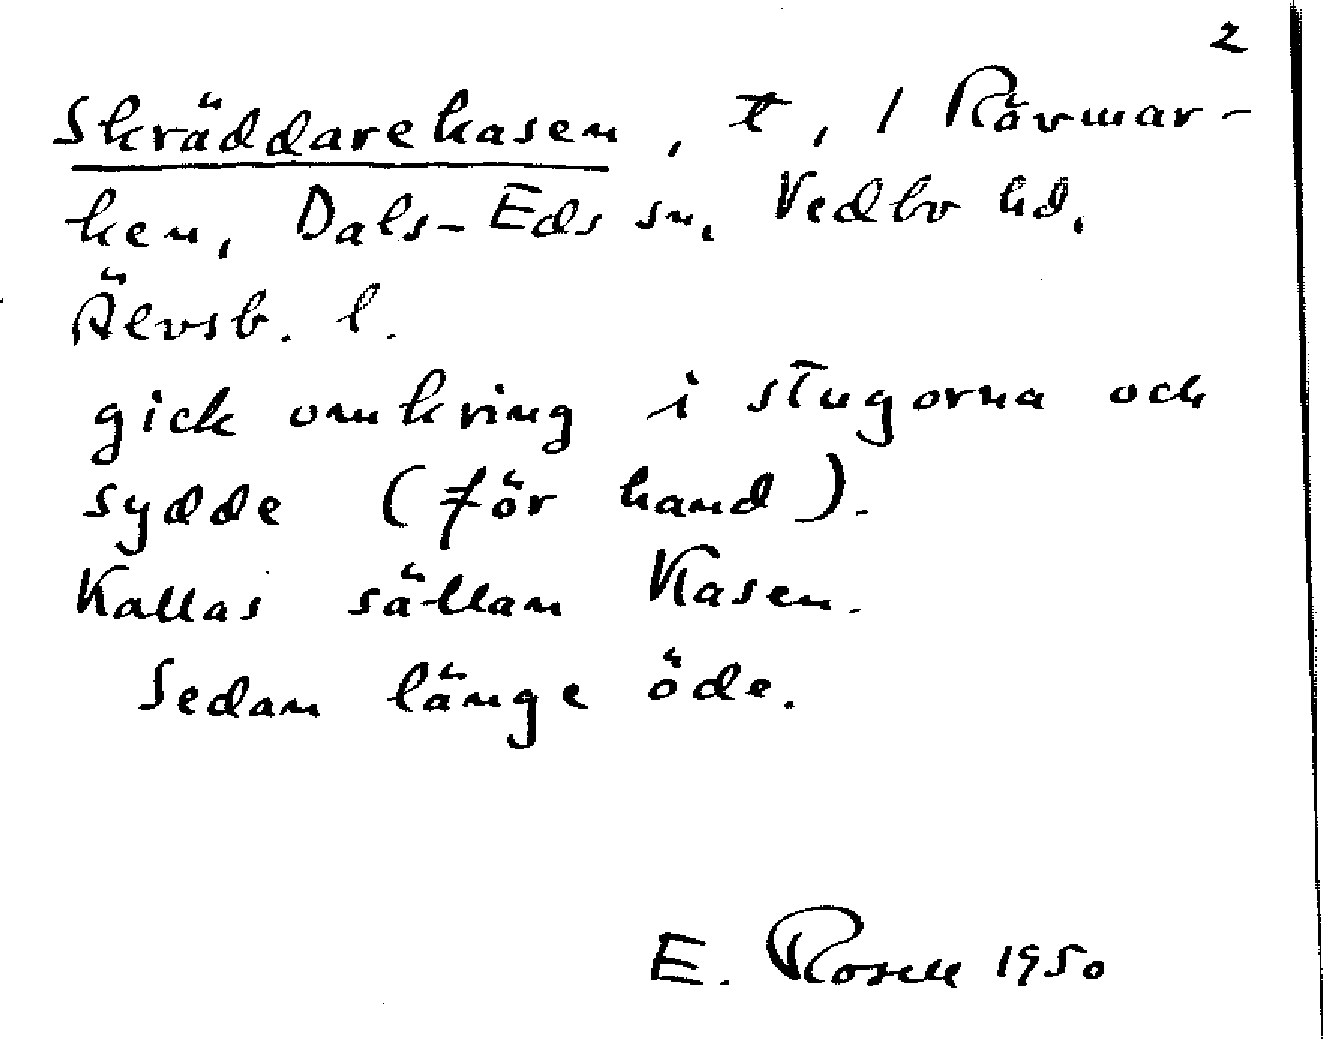 2
Skräddarekasen, t, / Rävmar-
ken, Dals-Eds sn, Vedbo hd,
Älvsb. l.
gick omkring i stugorna och
sydde (för hand).
Kallas sällan Kasen.
Sedan länge öde.
E. Rosell 1950